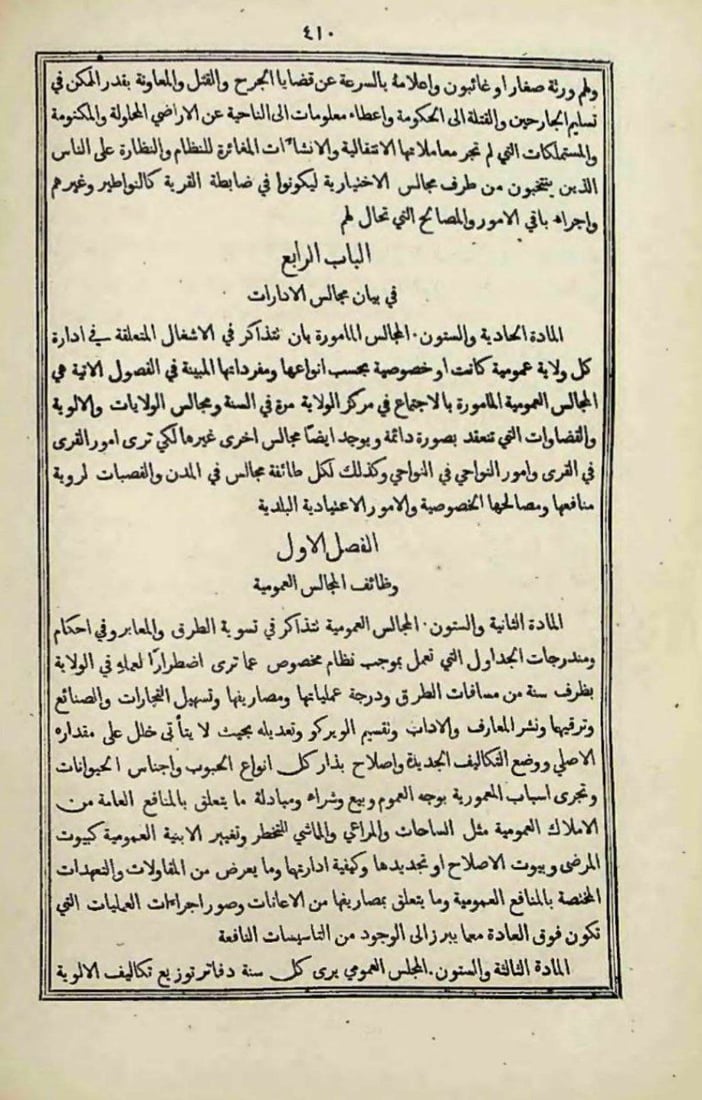 ٤١٠
ولهم ورثة صغار او غائبون واعلامهُ بالسرعة عن قضايا الجرح والقتل والمعاونة بقدر الممكن في
تسليم الجارحين والقتلة الى الحكومة واعطاء معلومات الى الناحية عن الاراضي المحلولة والمكتومة
والمستملكات التي لم تجرِ معاملاتها الانتقالية والانشاءات المغائرة للنظام والنظارة على الناس
الذين ينتخبون من طرف مجالس الاختيارية ليكونوا في ضابطة القرية كالنواطير وغيرهم
واجراء باقي الامور والمصالح التي تحال لهم
الباب الرابع
في بيان مجالس الادارات
المادة الحادية والستون · المجالس المامورة بان تتذاكر في الاشغال المتعلقة في ادارة
كل ولاية عمومية كانت او خصوصية بحسب انواعها ومفرداتها المبينة في الفصول الاتية هي
المجالس العمومية المامورة بالاجتماع في مركز الولاية مرة في السنة ومجالس الولايات والالوية
والقضاوات التي تنعقد بصورة دائمة ويوجد ايضًا مجالس اخرى غيرها لكي ترى امور القرى
في القرى وامور النواحي في النواحي وكذلك لكل طائفة مجالس في المدن والقصبات لروية
منافعها ومصالحها الخصوصية والامور الاعتيادية البلدية
الفصل الاول
وظائف المجالس العمومية
المادة الثانية والستون · المجالس العمومية تتذاكر في تسوية الطرق والمعابر وفي احكام
ومندرجات الجداول التي تعمل بموجب نظام مخصوص عما ترى اضطرارًا لعملهِ في الولاية
بظرف سنة من مسافات الطرق ودرجة عملياتها ومصاريفها وتسهيل التجارات والصنائع
وترقيها ونشر المعارف والاداب وتقسيم الويركو وتعديله بحيث لا يتأتى خلل على مقداره
الاصلي ووضع التكاليف الجديدة واصلاح بذار كل انواع الحبوب واجناس الحيوانات
وتجرى اسباب المعمورية بوجه العموم وبيع وشراء ومبادلة ما يتعلق بالمنافع العامة من
الاملاك العمومية مثل الساحات والمراعي والماشي للتخطر وتغيير الابنية العمومية كبيوت
المرضى وبيوت الاصلاح او تجديدها وكيفية ادارتها وما يعرض من المقاولات والتعهدات
المختصة بالمنافع العمومية وما يتعلق بمصاريفها من الاعانات وصور اجراءات العمليات التي
تكون فوق العادة مما يبرز الى الوجود من التاسيسات النافعة
المادة الثالثة والستون · المجلس العمومي يرى كل سنة دفاتر توزيع تكاليف الالوية